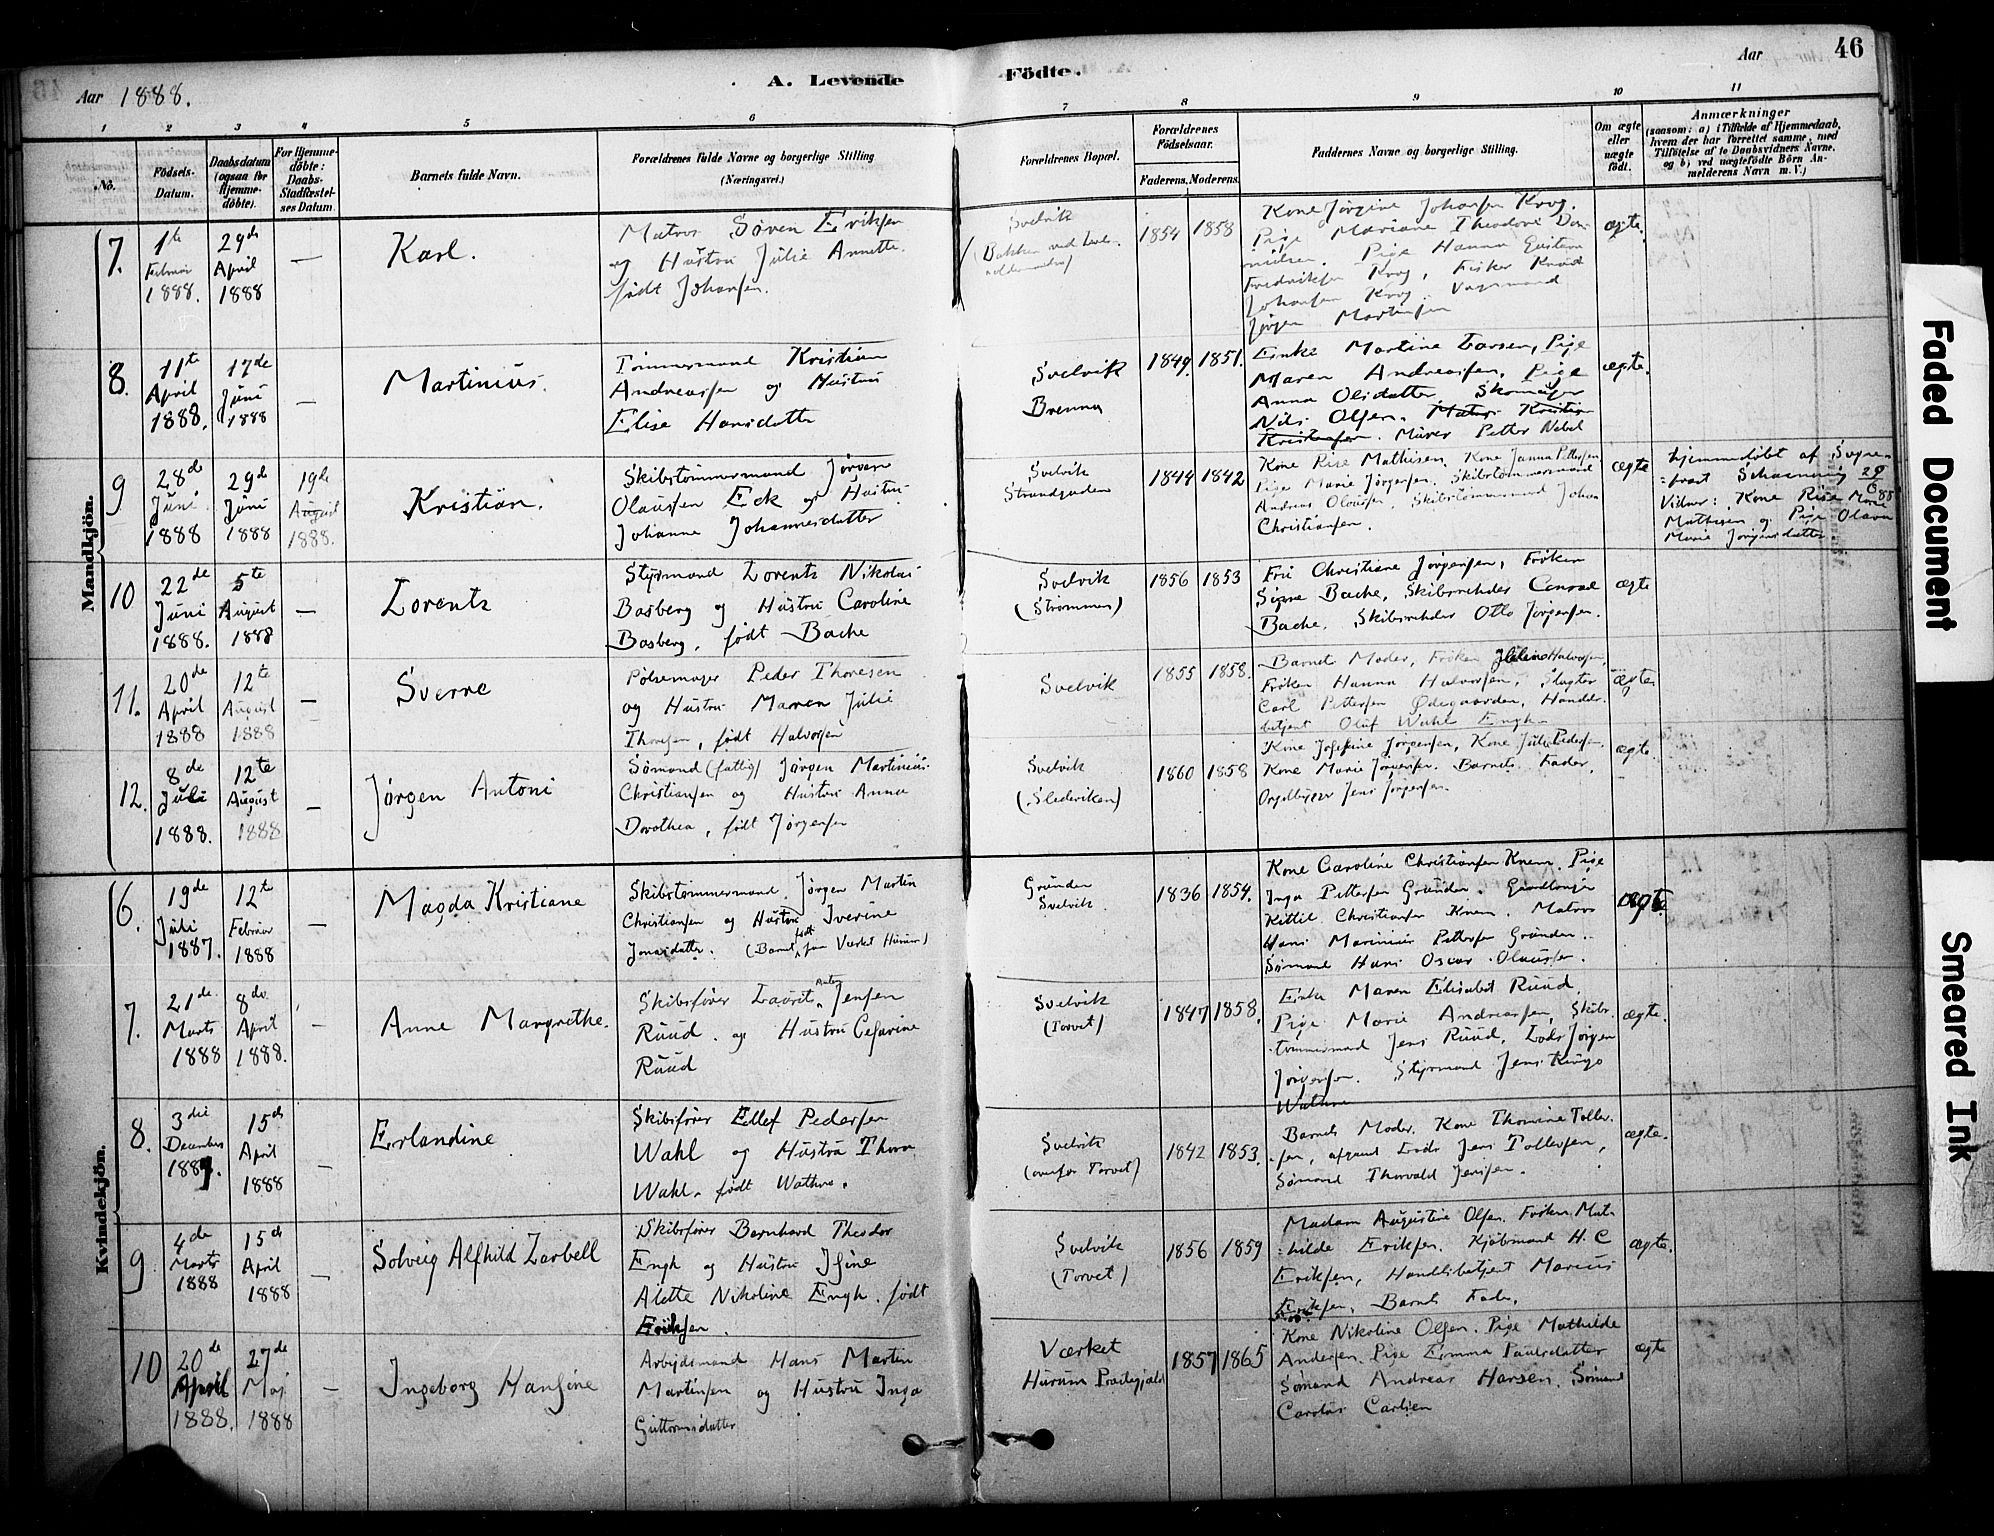 Aar 1888.
A. Levende Födte.
Aar
46
1 2 3 4 5 6 7 8 9 10 11
No.
Födsels-Datum.
Daabsdatum (ogsaa for Hjemmedöbte).
For Hjemmedöbte: Daabs-Stadfæstelses Datum.
Barnets fulde Navn.
Forældrenes fulde Navne og borgerlige Stilling
(Næringsvei.)
Forældrenes Bopæl.
Forældrenes Födselsaar.
Faderens. Moderens.
Faddernes Navne og borgerlige Stilling.
Om ægte eller uægte født.
Anmærkninger
(saasom: a) i Tilfælde af Hjemmedaab, hvem der har forrettet samme, med Tilföielse af to Daabsvidners Navne, og b) ved uægtefödte Börn Anmelderens Navn m. V.)
Mandkjön.
7. 1te Februar 1888. 29de April 1888 — Karl.
Matros Søren Eriksen
og Hustru Julie Annette
født Johansen.
Svelvik
(Bakken ved
1854 1858
Kone Jørgine Johansen Krog.
Pige Mariane Theodore Dan-
nielsen. Pige Hanna Gustava
Fredriksen Krog, Fisker Knud
Johansen Krog.
Jørgen Martinsen
ægte.
8. 11te April 1888. 17de Juni 1888 — Martinius.
Tømmermand Kristian
Andreassen og Hustru
Elise Hansdatter
Svelvik
Brenna
1849. 1851.
Enke Martine Larsen, Pige
Maren Andreassen, Pige
Anna Olsdatter, Skomager
Nils Olsen. Matros Kristian
Kristiansen. Murer Petter Nebel
ægte.
9 28de Juni 1888 29de Juni 1888 19de August 1888. Kristian.
Skibstømmermand Jørgen
Olaussen Eek og Hustru
Johanne Johannesdatter
Svelvik
Strandgaden
1844 1842
Kone Rise Mathisen. Kone Janna Pettersen
Pige Marie Jørgensen. Skibstømmermand
Andreas Olaussen, Skibstømmermand Johan
Christiansen.
ægte
Hjemmedøbt af Sogne-
præst Schasning 29/6 88
Vidner: Kone Rise Marie
Mathisen og Pige Olava
Marie Jørgensdatter.
10 22de Juni 1888. 5te August 1888 — Lorentz
Styrmand Lorentz Nikolai
Basberg og Hustru Caroline
Basberg, født Bache
Svelvik
(Strømmen)
1856 1853
Fru Christiane Jørgensen, Frøken
Signe Bache, Skibsrheder Conrad
Bache. Skibsrheder Otto Jørgensen.
ægte
11. 20de April 1888 12te August 1888 — Sverre
Pølsemager Peder Thoresen
og Hustru Maren Julie
Thoresen, født Halvorsen
Svelvik
1855 1858.
Barnets Moder, Frøken Helene Halvorsen,
Frøken Hanna Halvorsen, Slagter
Carl Pettersen Ødegaarden, Handels-
betjent Oluf Wahl Engh
ægte
12. 8de Juli 1888. 12te August 1888 — Jørgen Antoni
Sømand (fattig) Jørgen Martinius
Christiansen og Hustru Anna
Dorothea, født Jørgensen
Svelvik
(Sledeviken)
1860 1858
Kone Josefine Jørgensen, Kone Julie Pedersen,
Kone Marie Jørgensen. Barnets Fader,
Orgelbygger Jens Jørgensen.
ægte.
Kvindekjön.
6. 19de Juli 1887. 12te Februar 1888 — Magda Kristiane
Skibstømmermand Jørgen Martin
Christiansen og Hustru Iverine
Jonasdatter. (Barnet født paa Værket Hurum)
Grunden
Svelvik
1836 1854.
Kone Caroline Christiansen Knem. Pige
Inga Pettersen Grunden.
Kittil Christiansen Knem. Matros
Hans Marinius Pettersen Grunden.
Sømand Hans Oscar Olaussen.
ægte.
7. 21de Marts 1888 8de April 1888. — Anne Margrethe.
Skibsfører Laurits Anton Jensen
Ruud og Hustru Cesarine
Ruud
Svelvik
(Torvet)
1847 1858.
Enke Maren Elisabet Ruud,
Pige Marie Andreassen, Skibs-
tømmermand Jens Ruud, Lods Jørgen
Jørgensen. Styrmand Jens Ringo
Wathne
ægte.
8. 3die December 1887. 15de April 1888 — Erlandine
Skibsfører Ellef Pedersen
Wahl og Hustru Thora
Wahl. født Wathne.
Svelvik
(ovenfor Torvet)
1842 1853.
Barnets Moder. Kone Thomine Tollef-
sen, Lods Jens Tollefsen,
Sømand Thorvald Jensen.
ægte.
9 4de Marts 1888 15de April 1888 — Solveig Alfhild Zarbell
Skibsfører Bernhard Theodor
Engh og Hustru
Alette Nikoline Engh. født
Eriksen.
Svelvik
(Torvet)
1856 1859
Madam Augustine Olsen. Frøken Mat-
hilde Eriksen. Kjøbmand H. C
Eriksen, Handelsbetjent Marius
Eriksen, Barnets Fader.
ægte.
10 20de April 1888. 27de Maj 1888 — Ingeborg Hansine
Arbejdsmand Hans Martin
Martinsen og Hustru Inga
Guttormsdatter
Værket
Hurum Præstegjæld
1857 1865
Kone Nikoline Olsen. Pige Mathilde
Andersen. Pige Emma Paulsdatter
Sømand Andreas Hansen. Sømand
Carolus Carlsen
ægte
Faded Document
Smeared Ink